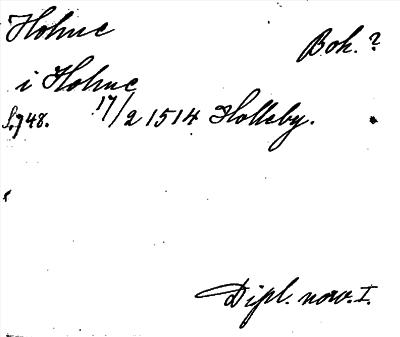 Holme
Boh. ?
i Holme
S. 748. 17/2 1514 Holleby.
Dipl. norv. I.